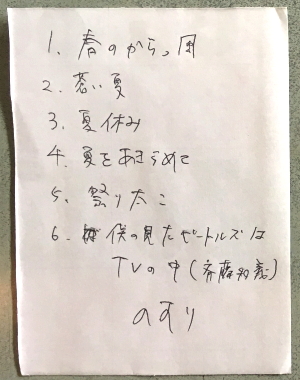 1. 春のからっ風
2. 蒼い夏
3. 夏休み
4. 夏をあきらめて
5. 祭り太こ
6. 僕の見たビートルズは
TVの中(斉藤和義)
のすり